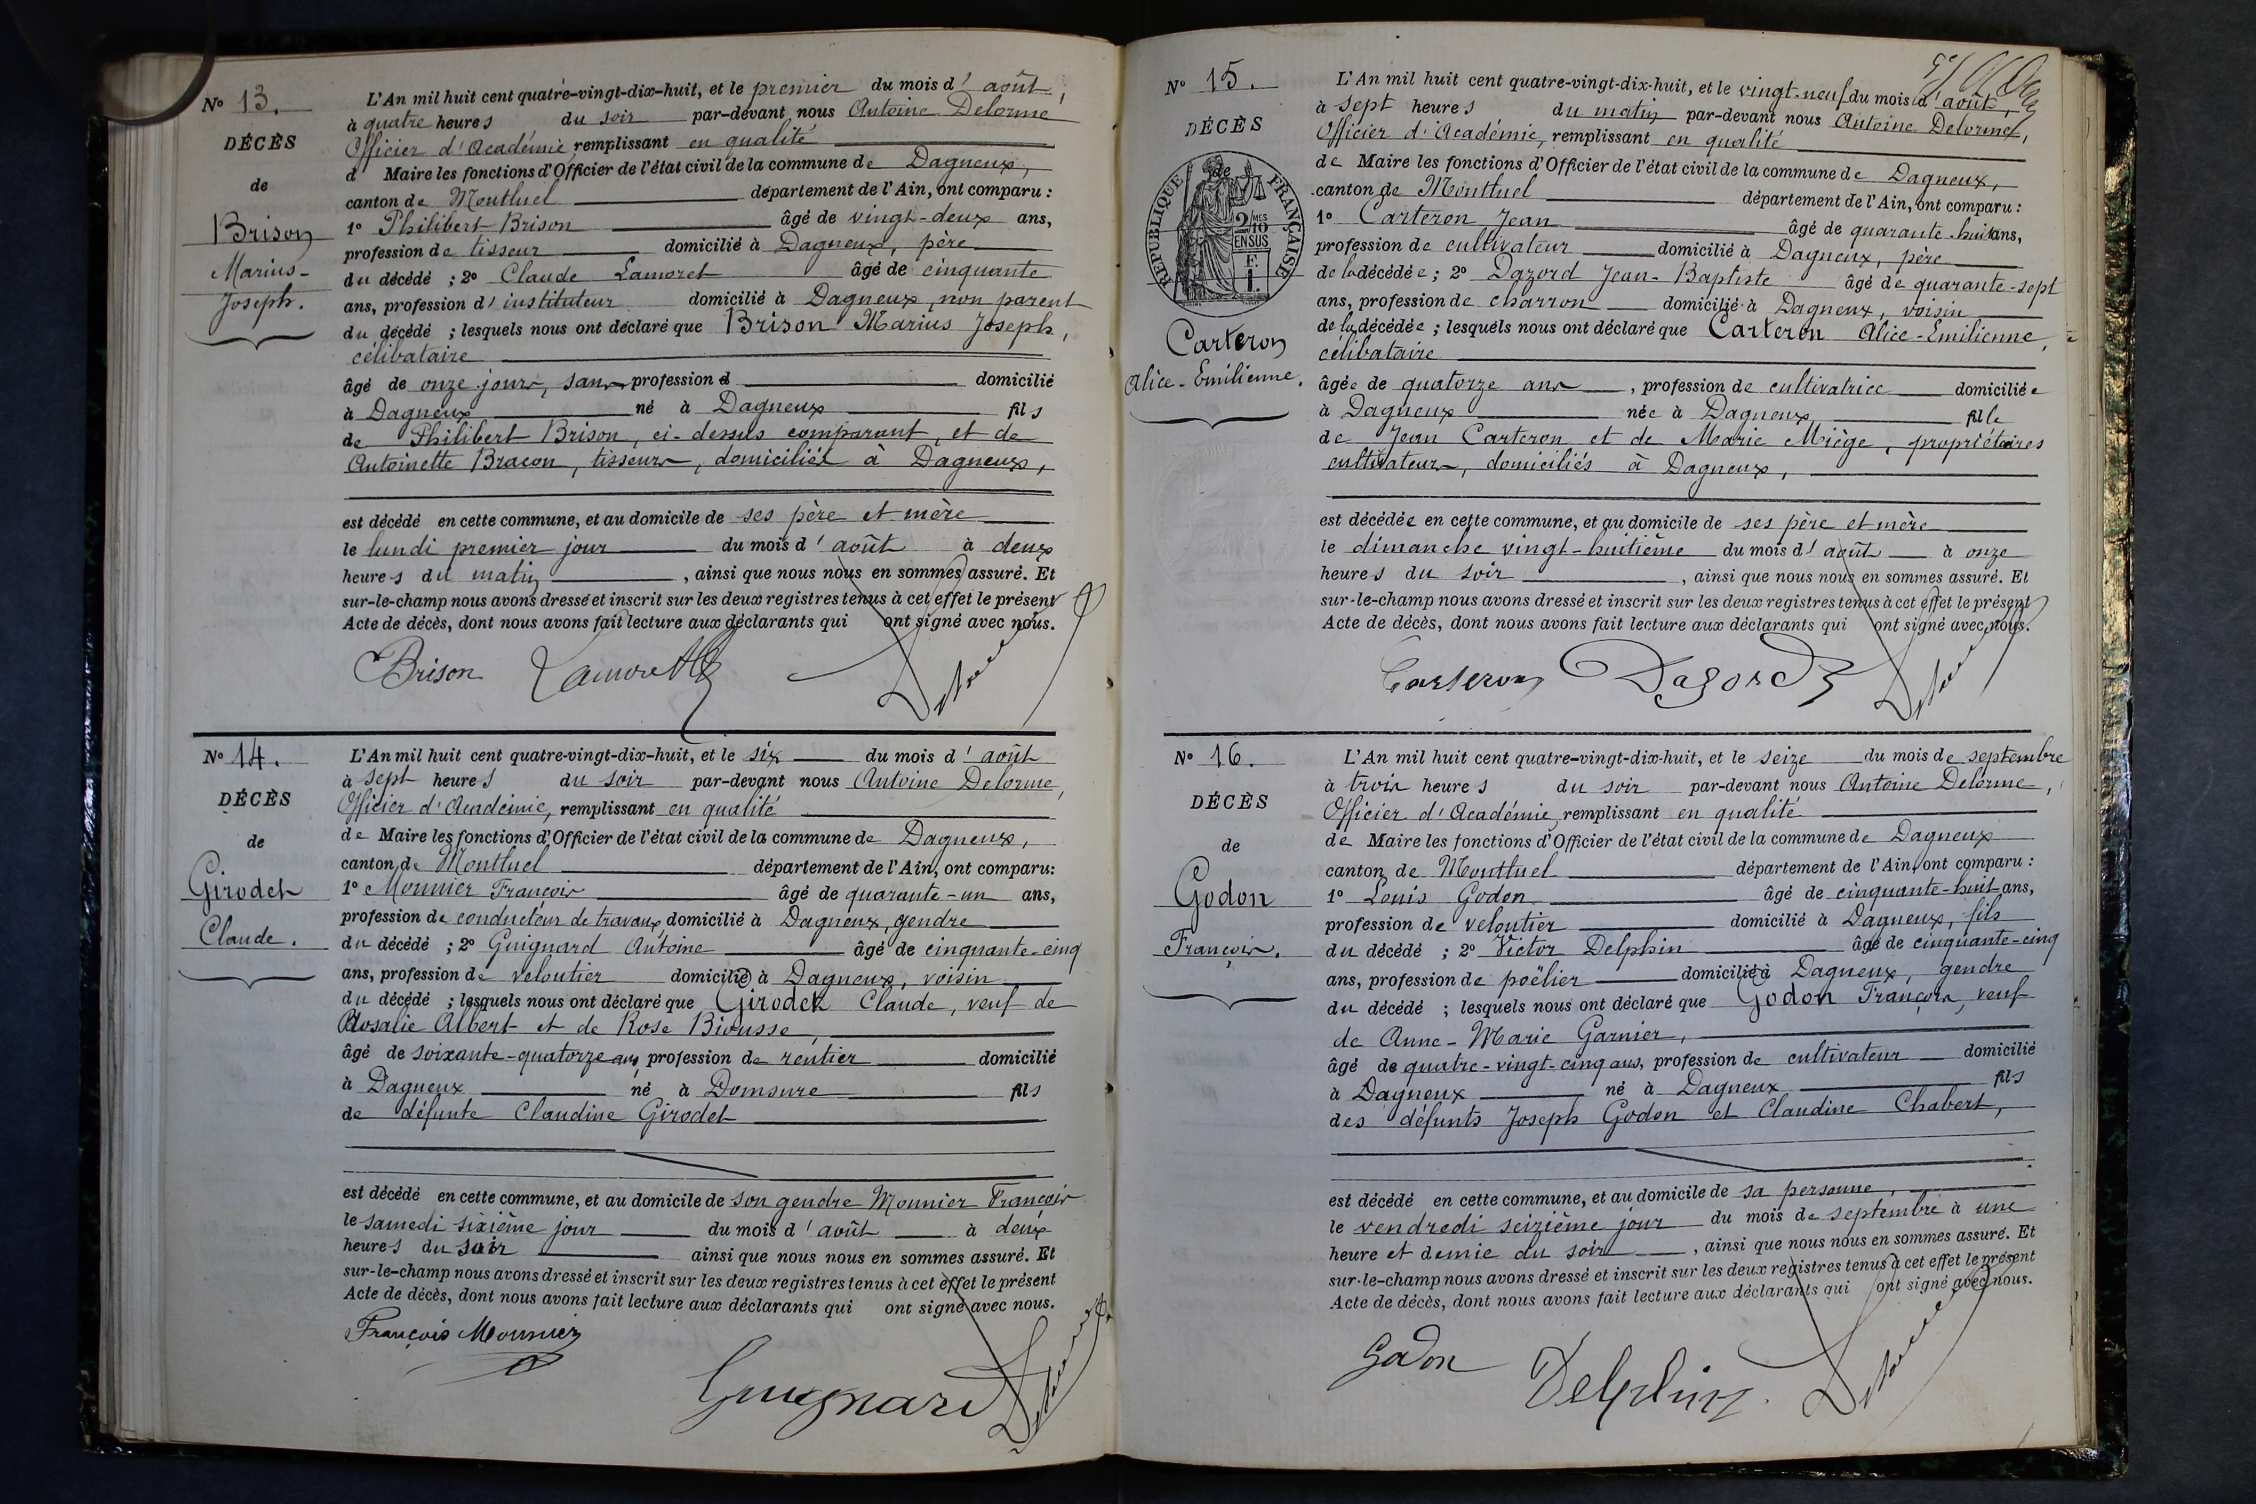 N° 13.
DÉCÈS
de
Brison
Marius-
Joseph.
L'An mil huit cent quatre-vingt-dix-huit, et le premier du mois d'août,
à quatre heures du soir par-devant nous Antoine Delorme
Officier d'Académie remplissant en qualité
d Maire les fonctions d'Officier de l'état civil de la commune de Dagneux,
canton de Montluel département de l'Ain, ont comparu :
1° Philibert Brison âgé de vingt-deux ans,
profession de tisseur domicilié à Dagneux, père
du décédé ; 2° Claude Lamoret âgé de cinquante
ans, profession d'instituteur domicilié à Dagneux, non parent
du décédé ; lesquels nous ont déclaré que Brison Marius Joseph,
célibataire
âgé de onze jours, sans profession d domicilié
à Dagneux né à Dagneux fils
de Philibert Brison, ci-dessus comparant, et de
Antoinette Bracon, tisseurs, domiciliés à Dagneux,
est décédé en cette commune, et au domicile de ses père et mère
le lundi premier jour du mois d'août à deux
heures du matin, ainsi que nous nous en sommes assuré. Et
sur-le-champ nous avons dressé et inscrit sur les deux registres tenus à cet effet le présent
Acte de décès, dont nous avons fait lecture aux déclarants qui ont signé avec nous.
Brison Lamorette Delorme
N° 14.
DÉCÈS
de
Girodet
Claude.
L'An mil huit cent quatre-vingt-dix-huit, et le six du mois d'août
à sept heures du soir par-devant nous Antoine Delorme,
Officier d'Académie, remplissant en qualité
de Maire les fonctions d'Officier de l'état civil de la commune de Dagneux,
canton de Montluel département de l'Ain, ont comparu:
1° Mounier François âgé de quarante-un ans,
profession de conducteur de travaux domicilié à Dagneux, gendre
du décédé ; 2° Guignard Antoine âgé de cinquante-cinq
ans, profession de veloutier domicilié à Dagneux, voisin
du décédé ; lesquels nous ont déclaré que Girodet Claude, veuf de
Rosalie Albert et de Rose Biousse,
âgé de soixante-quatorze ans, profession de rentier domicilié
à Dagneux né à Domsure fils
de défunte Claudine Girodet
est décédé en cette commune, et au domicile de son gendre Mounier François
le samedi sixième jour du mois d'août à deux
heures du soir ainsi que nous nous en sommes assuré. Et
sur-le-champ nous avons dressé et inscrit sur les deux registres tenus à cet effet le présent
Acte de décès, dont nous avons fait lecture aux déclarants qui ont signé avec nous.
François Mounier
Guignard Delorme
N° 15.
DÉCÈS
de
RÉPUBLIQUE FRANÇAISE
2/10 MES
EN SUS
F.
1.
Carteron
Alice-Emilienne.
L'An mil huit cent quatre-vingt-dix-huit, et le vingt-neuf du mois d'août,
à sept heures du matin par-devant nous Antoine Delorme,
Officier d'Académie, remplissant en qualité
de Maire les fonctions d'Officier de l'état civil de la commune de Dagneux,
canton de Montluel département de l'Ain, ont comparu :
1° Carteron Jean âgé de quarante-huit ans,
profession de cultivateur domicilié à Dagneux, père
de la décédée ; 2° Dazord Jean-Baptiste âgé de quarante-sept
ans, profession de charron domicilié à Dagneux, voisin
de la décédée ; lesquels nous ont déclaré que Carteron Alice-Emilienne,
célibataire
âgée de quatorze ans, profession de cultivatrice domiciliée
à Dagneux née à Dagneux fille
de Jean Carteron et de Marie Miège, propriétaires
cultivateurs, domiciliés à Dagneux,
est décédée en cette commune, et au domicile de ses père et mère
le dimanche vingt-huitième du mois d'août à onze
heures du soir, ainsi que nous nous en sommes assuré. Et
sur-le-champ nous avons dressé et inscrit sur les deux registres tenus à cet effet le présent
Acte de décès, dont nous avons fait lecture aux déclarants qui ont signé avec nous.
Carteron Dazord Delorme
N° 16.
DÉCÈS
de
Godon
François.
L'An mil huit cent quatre-vingt-dix-huit, et le seize du mois de septembre
à trois heures du soir par-devant nous Antoine Delorme,
Officier d'Académie, remplissant en qualité
de Maire les fonctions d'Officier de l'état civil de la commune de Dagneux
canton de Montluel département de l'Ain, ont comparu :
1° Louis Godon âgé de cinquante-huit ans,
profession de veloutier domicilié à Dagneux, fils
du décédé ; 2° Victor Delphin âgé de cinquante-cinq
ans, profession de poëlier domicilié à Dagneux, gendre
du décédé ; lesquels nous ont déclaré que Godon François, veuf
de Anne-Marie Garnier,
âgé de quatre-vingt-cinq ans, profession de cultivateur domicilié
à Dagneux né à Dagneux fils
des défunts Joseph Godon et Claudine Chabert,
est décédé en cette commune, et au domicile de sa personne,
le vendredi seizième jour du mois de septembre à une
heure et demie du soir, ainsi que nous nous en sommes assuré. Et
sur-le-champ nous avons dressé et inscrit sur les deux registres tenus à cet effet le présent
Acte de décès, dont nous avons fait lecture aux déclarants qui ont signé avec nous.
Godon Delphin. Delorme